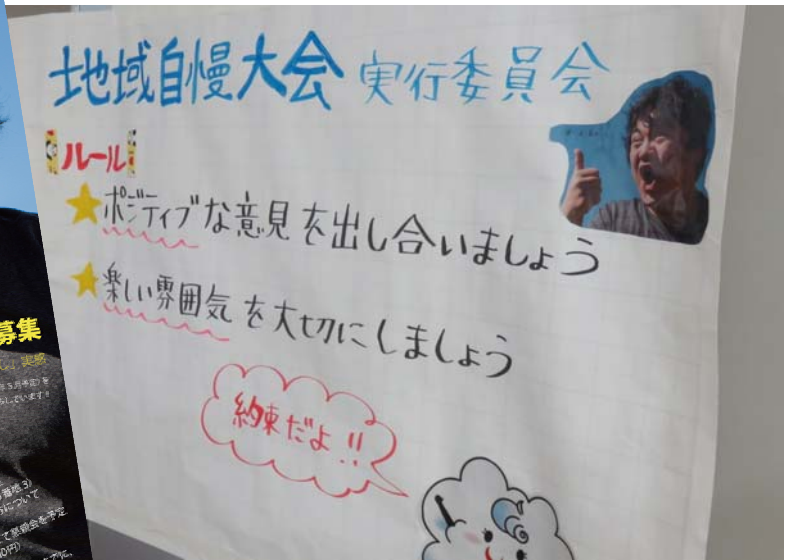 地域自慢大会 実行委員会
ルール
ポジティブな意見を出し合いましょう
楽しい雰囲気を大切にしましょう
約束だよ!!
募集